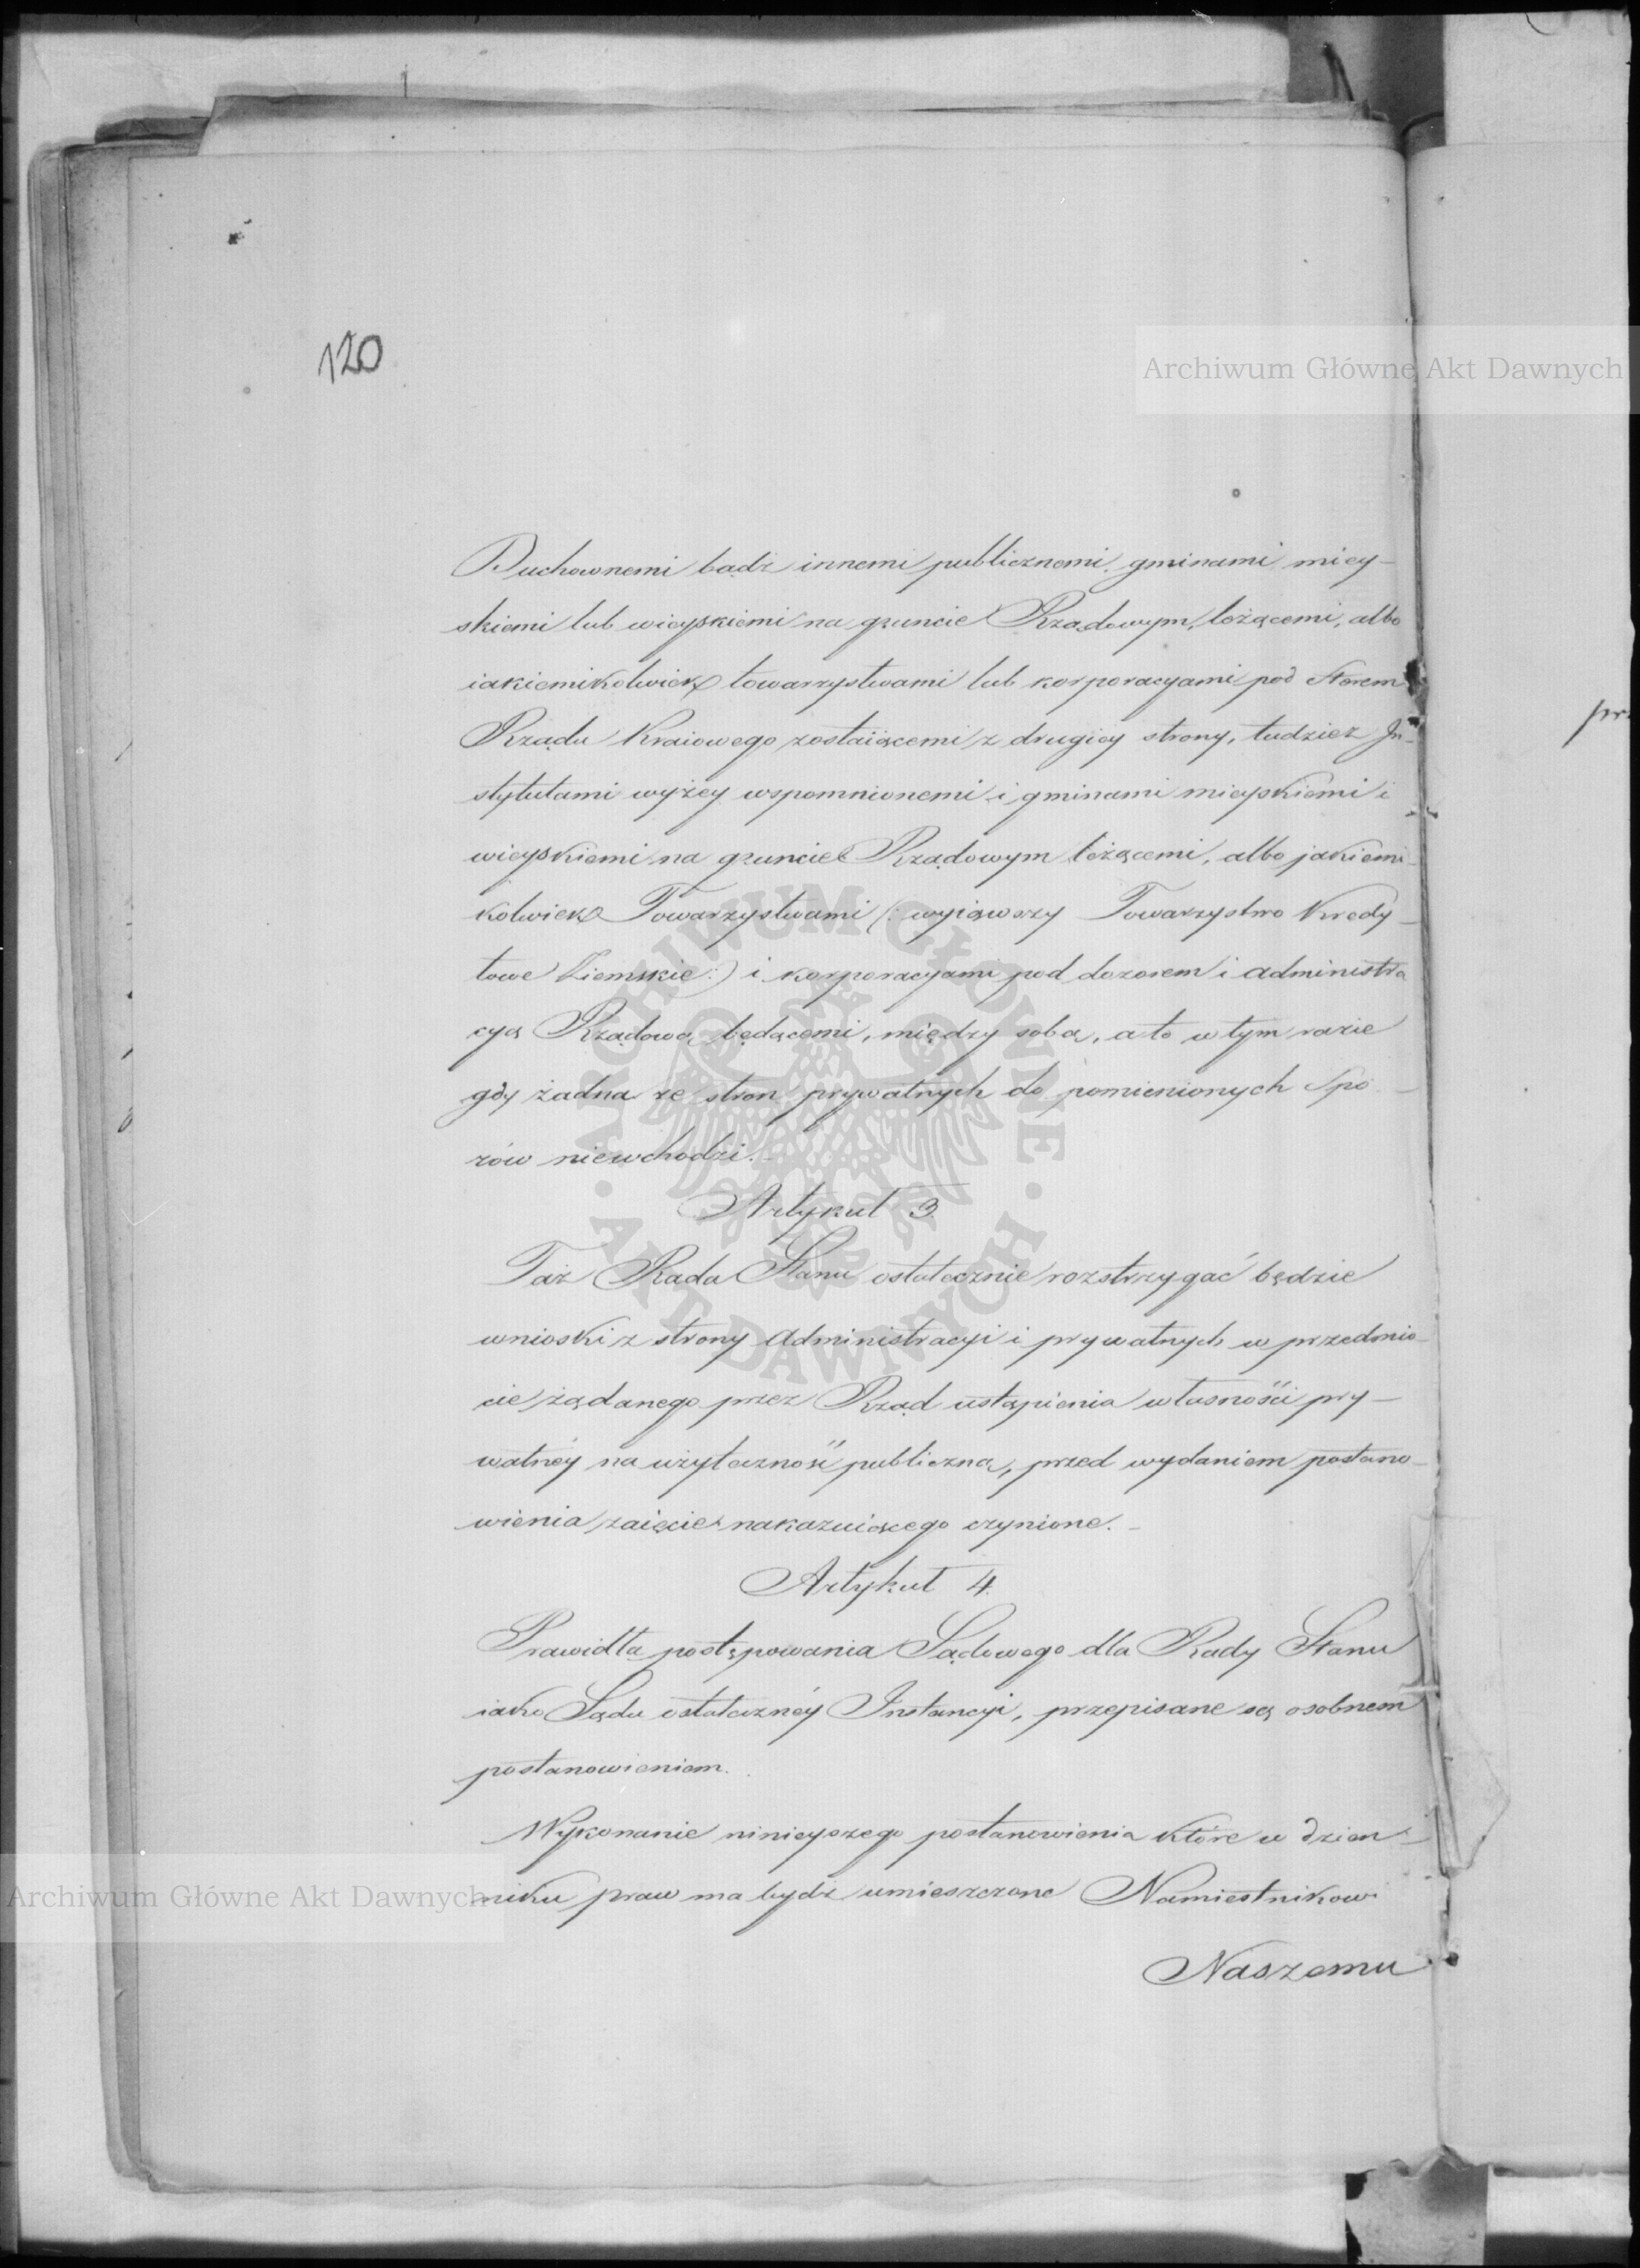 120
Archiwum Główne Akt Dawnych
Duchownemi bądź innemi publicznemi, gminami miey-
skiemi lub wieyskiemi na gruncie Rządowym leżącemi, albo
iakiemikolwiek towarzystwami lub korporacyami pod sterem
Rządu Kraiowego zostaiącemi z drugiey strony, tudzież In-
stytutami wyżey wspomnionemi i gminami mieyskiemi i
wieyskiemi na gruncie Rządowym leżącemi, albo jakiemi-
kolwiek Towarzystwami (: wyiąwszy Towarzystwo Kredy-
towe Ziemskie :) i korporacyami pod dozorem i administra
cyą Rządową będącemi, między sobą, a to w tym razie
gdy żadna ze stron prywatnych do pomienionych Spo-
rów niewchodzi.
Artykuł 3
Taż Rada Stanu ostatecznie rozstrzygać będzie
wnioski z strony Administracyi i prywatnych w przedmio-
cie żądanego przez Rząd ustąpienia własności pry-
watnéy na użyteczność publiczną, przed wydaniem postano-
wienia zaięcie nakazuiącego czynione.-
Artykuł 4.
Prawidła postępowania Sądowego dla Rady Stanu
iako Sądu ostatecznéy Instancyi, przepisane są osobnem
postanowieniem.
Wykonanie ninieyszego postanowienia które w dzien-
niku praw ma bydź umieszczone Namiestnikowi
Naszemu
pr
Archiwum Główne Akt Dawnych
ARCHIWUM GŁÓWNE · AKT DAWNYCH ·